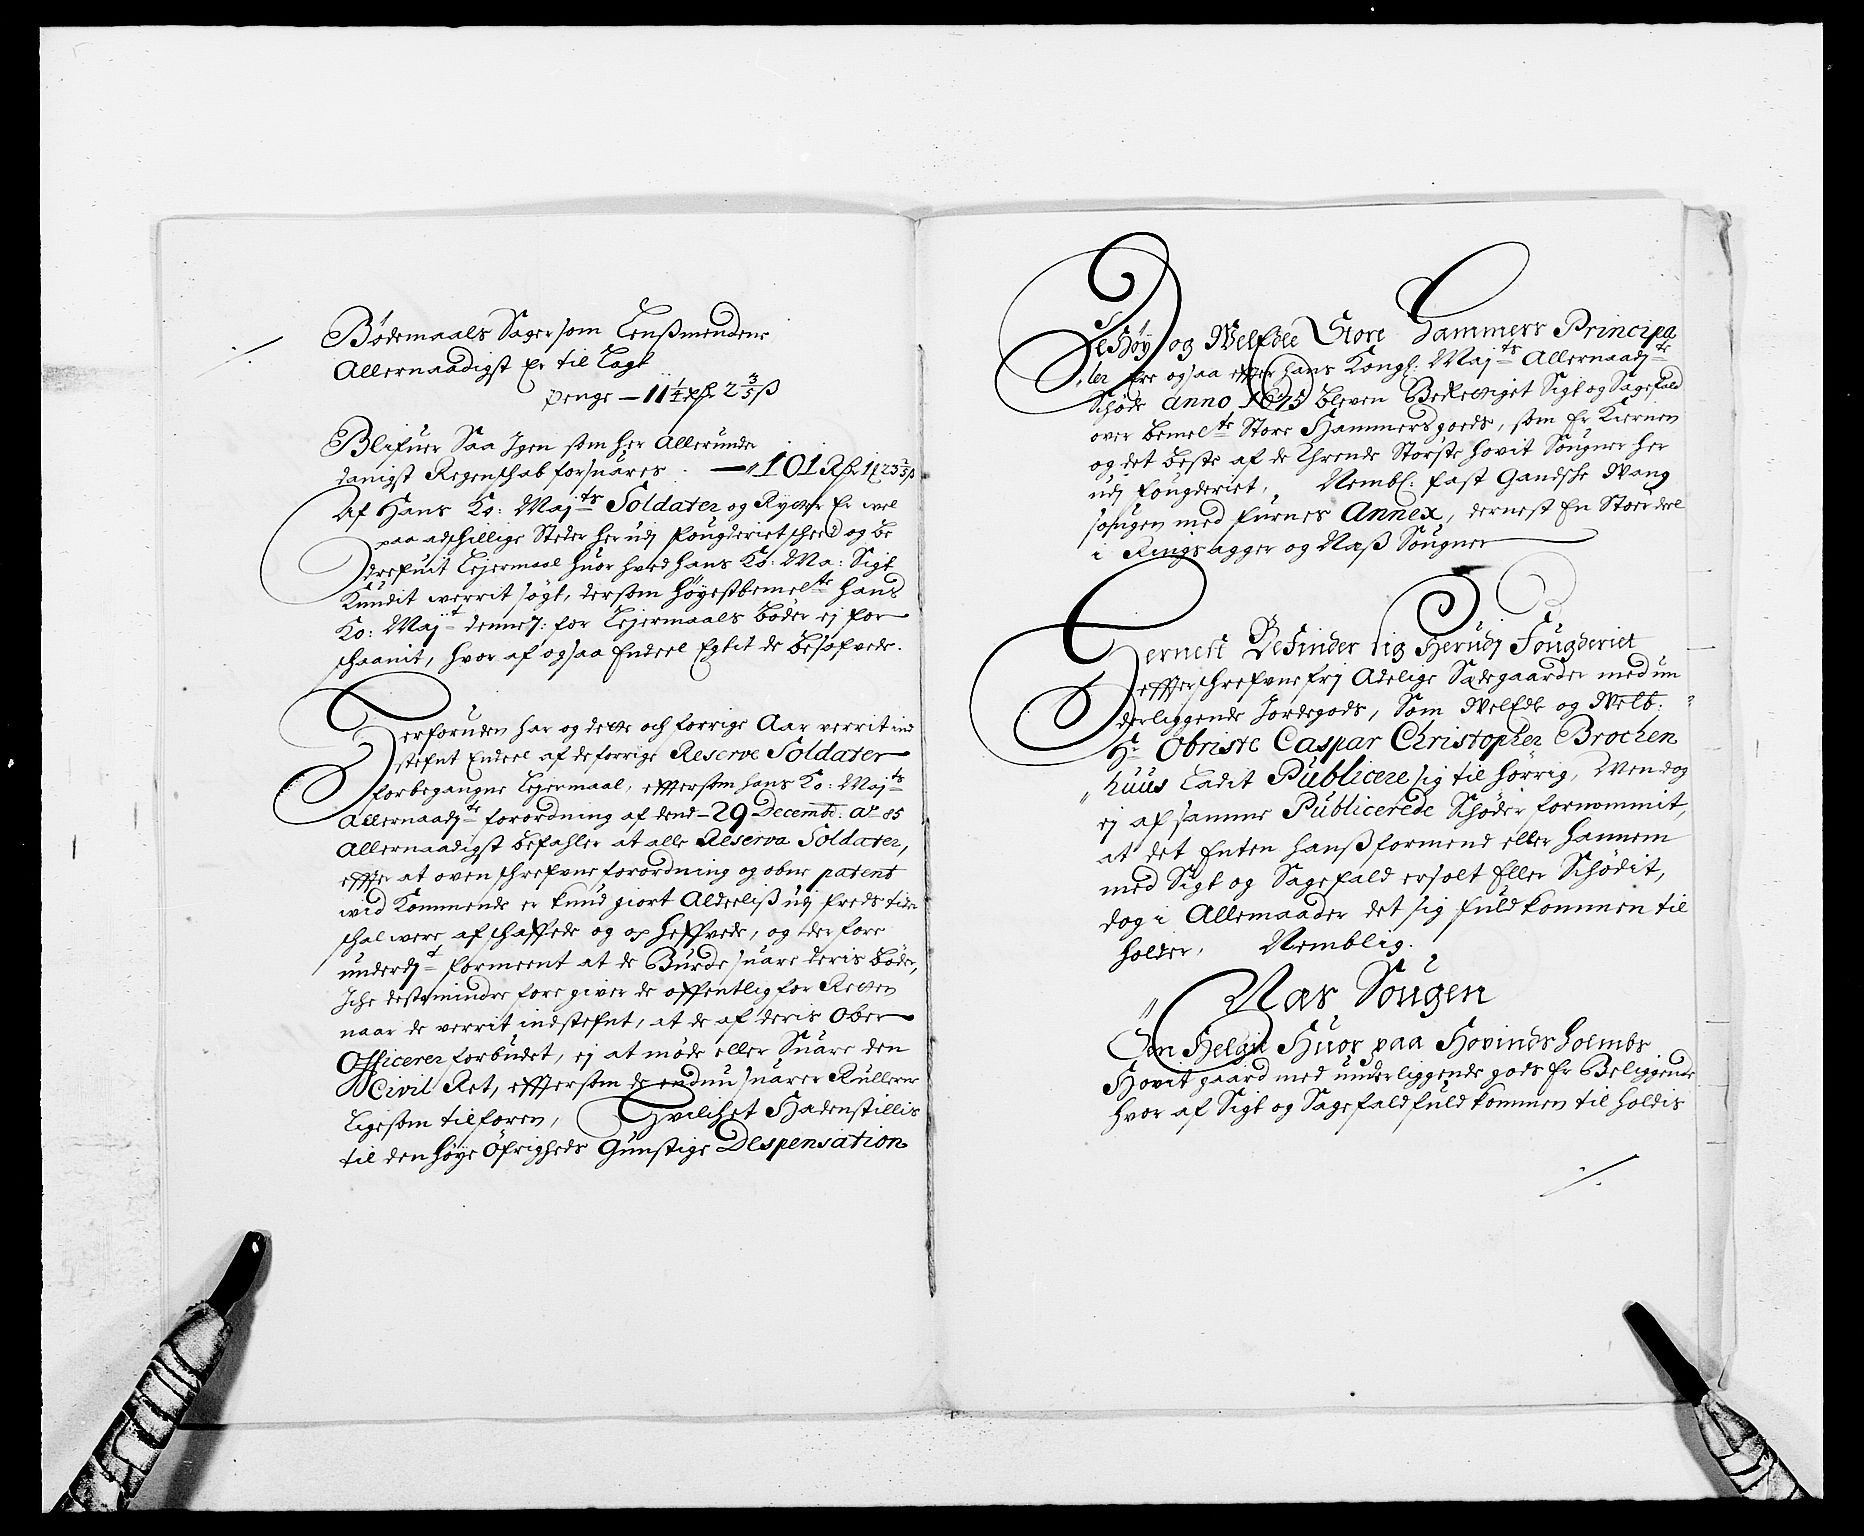 Bødemaals Sager som Lensmendene
Allernaadigst Er til Lagt
penge — 11½ rdr 2 3/5 ß
Blifuer Saa Igen som her Allerunder
danigst Regenschab forsuares — 101 Rdr 1 ℔ 23 2/5 ß
Af Hans Ko: Maj.ts Soldater og Rytter Er vel
paa adschillige Steder her udj Fougderiet scheed og be
drefuit Lejermaal huor hved hans Ko: Ma: Sigt
Kundit werrit søgt, dersom Høyestbemel.te hans
Ko: Maj.t dennem for Lejermaals bøder ej for
schaanit, hvor af ogsaa Endeel Egtet de besofvede.
Derforuden har og dette och forrige Aar verrit ind
stefnt Endeel af de forrige Reserve Soldater
forbegangne Lejermaal, efftersom hans Ko: Maj.ts
Allernaadj.te forordning af dend 29 Decembr: Ao 85
Allernaadigst befahler at alle Reserva Soldater,
effter at ovenschrefvne forordning og obne patent
wid Kommende er kund giort Aldeelis udj freds tider
schal were afschaffede og op heffvede, og derfore
underd.t formeent at de burde suare deris bøder,
Iche destomindre foregiver de offentlig for Retten
naar de verrit indstefnt, at de af deris Ober
Officerer forbudet, ej at møde eller Suare den
Civil Ret, effttersom de endnu suarer Rullerne
Ligesom tilforen, Hvilchet Hadenstillis
til den høye Øfrigheds Gunstige Despensation
De Høy og Welædle Store Hammers Principa
ler Ere ogsaa effter hans Kongl: Maj.ts Allernaadj.te
Schøde Anno 1675 bleven Bereviget Sigt og Sagefald
over bemel.te Store Hammers goeds, som Er Kiernen
og det beste af de Thrende Største hovit Sougner her
udj Fougderiet, Nembl: fast Gandsche Wang
sougen med Furnes Annex, dernest En Stoer deel
i Ringsagger og Nass Sougner
Dernest Befinder sig Herudj Fougderiet
effterschrefvne frj Adelige Sædegaarder med un
derliggende Jordegods, Som Welædle og Welb:
Hr. Obriste Caspar Christopher Brochen
huus Ladit Publicere sig til hørrig, Mendog
ej af samme Publicerede Schøder fornommit,
at det Enten hans formend eller hannem
med Sigt og Sagefald ersolt Eller Schødit,
dog i Allemaader det sig fuldkommen til
holder, Nemblig.
Næs Sougen
Den Helgø Huor paa Hovindsholmbs
Hovitgaard med underliggende gods Er Beliggende
hvor af Sigt og Sagefald fuldkommen til holdis